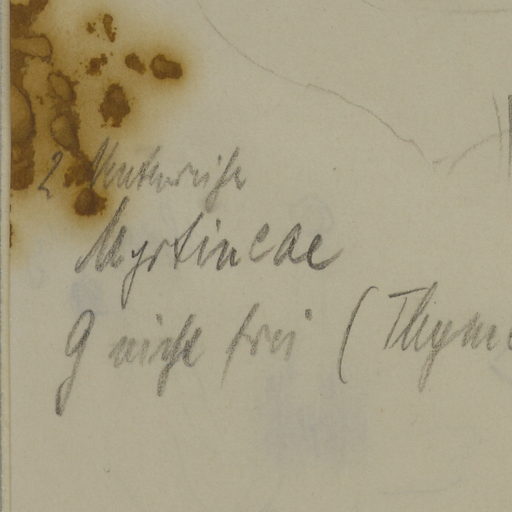 2 Unterreihe
Myrtineae
G nicht frei (Thyme